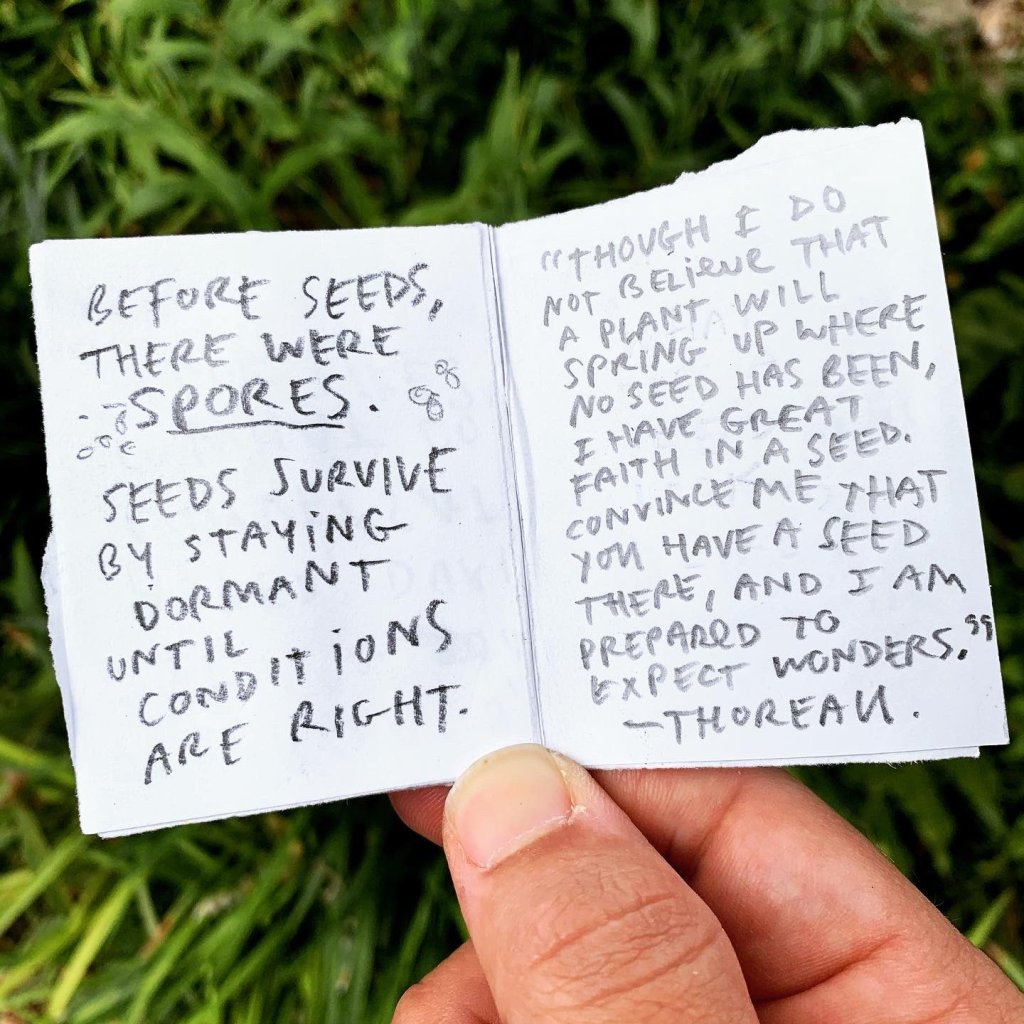 BEFORE SEEDS,
THERE WERE
SPORES.
SEEDS SURVIVE
BY STAYING
DORMANT
UNTIL
CONDITIONS
ARE RIGHT.
“THOUGH I DO
NOT BELIEVE THAT
A PLANT WILL
SPRING UP WHERE
NO SEED HAS BEEN,
I HAVE GREAT
FAITH IN A SEED.
CONVINCE ME THAT
YOU HAVE A SEED
THERE, AND I AM
PREPARED TO
EXPECT WONDERS.”
—THOREAU.